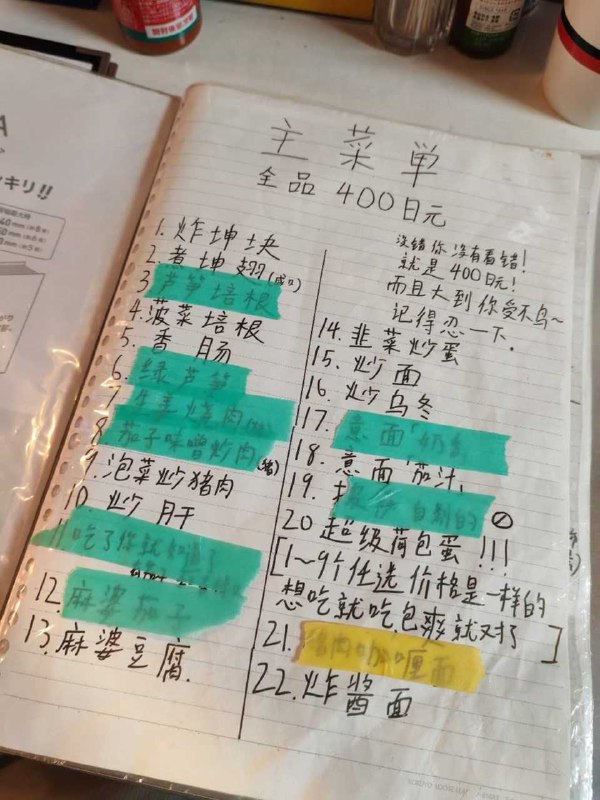 主菜単
全品 400日元
1. 炸坤块
2. 煮坤翅
3. 芦笋培根
4. 菠菜培根
5. 香肠
6. 绿芦笋
7. 生姜烧肉
8. 茄子味噌炒肉(猪)
9. 泡菜炒猪肉
10. 炒肝
11. 吃了你就知道了
12. 麻婆茄子
13. 麻婆豆腐.
没错你没有看错!
就是400日元!
而且大到你受不鸟~
记得忍一下.
14. 韭菜炒蛋
15. 炒面
16. 炒乌冬
17. 意面「奶
18. 意面「茄汁」
19. 自制的
20 超级荷包蛋!!!
[1~9个任选价格是一样的
想吃就吃包爽就对了]
21. 猪肉咖喱面
22. 炸酱面
キリ!!